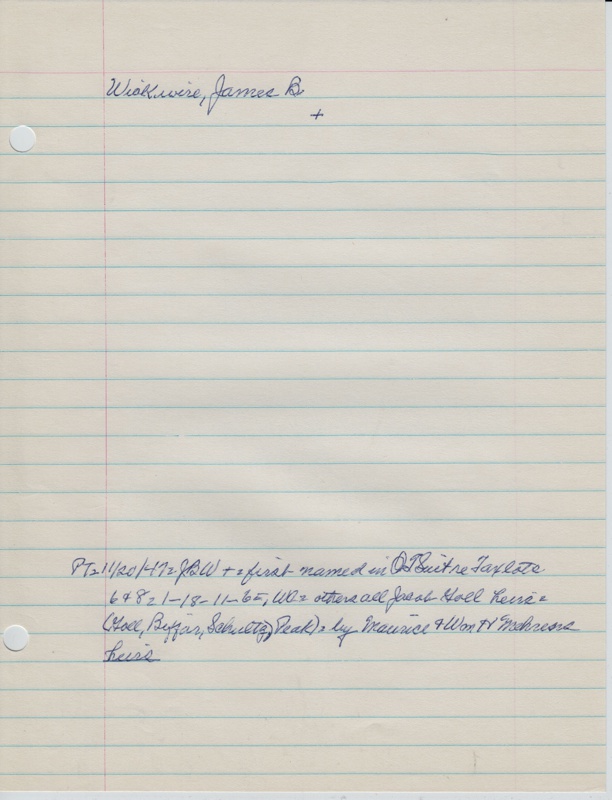 Wickwire, James B.
+
PT = 11/20/47 = JBW + = first named in QTSuit re Taxlots
6 & 8 = 1-18-11-6E, WO = others all Jacob Goll heirs =
(Goll, Biffar, Schultz, Peak) = by Maurice & Wm H
heirs